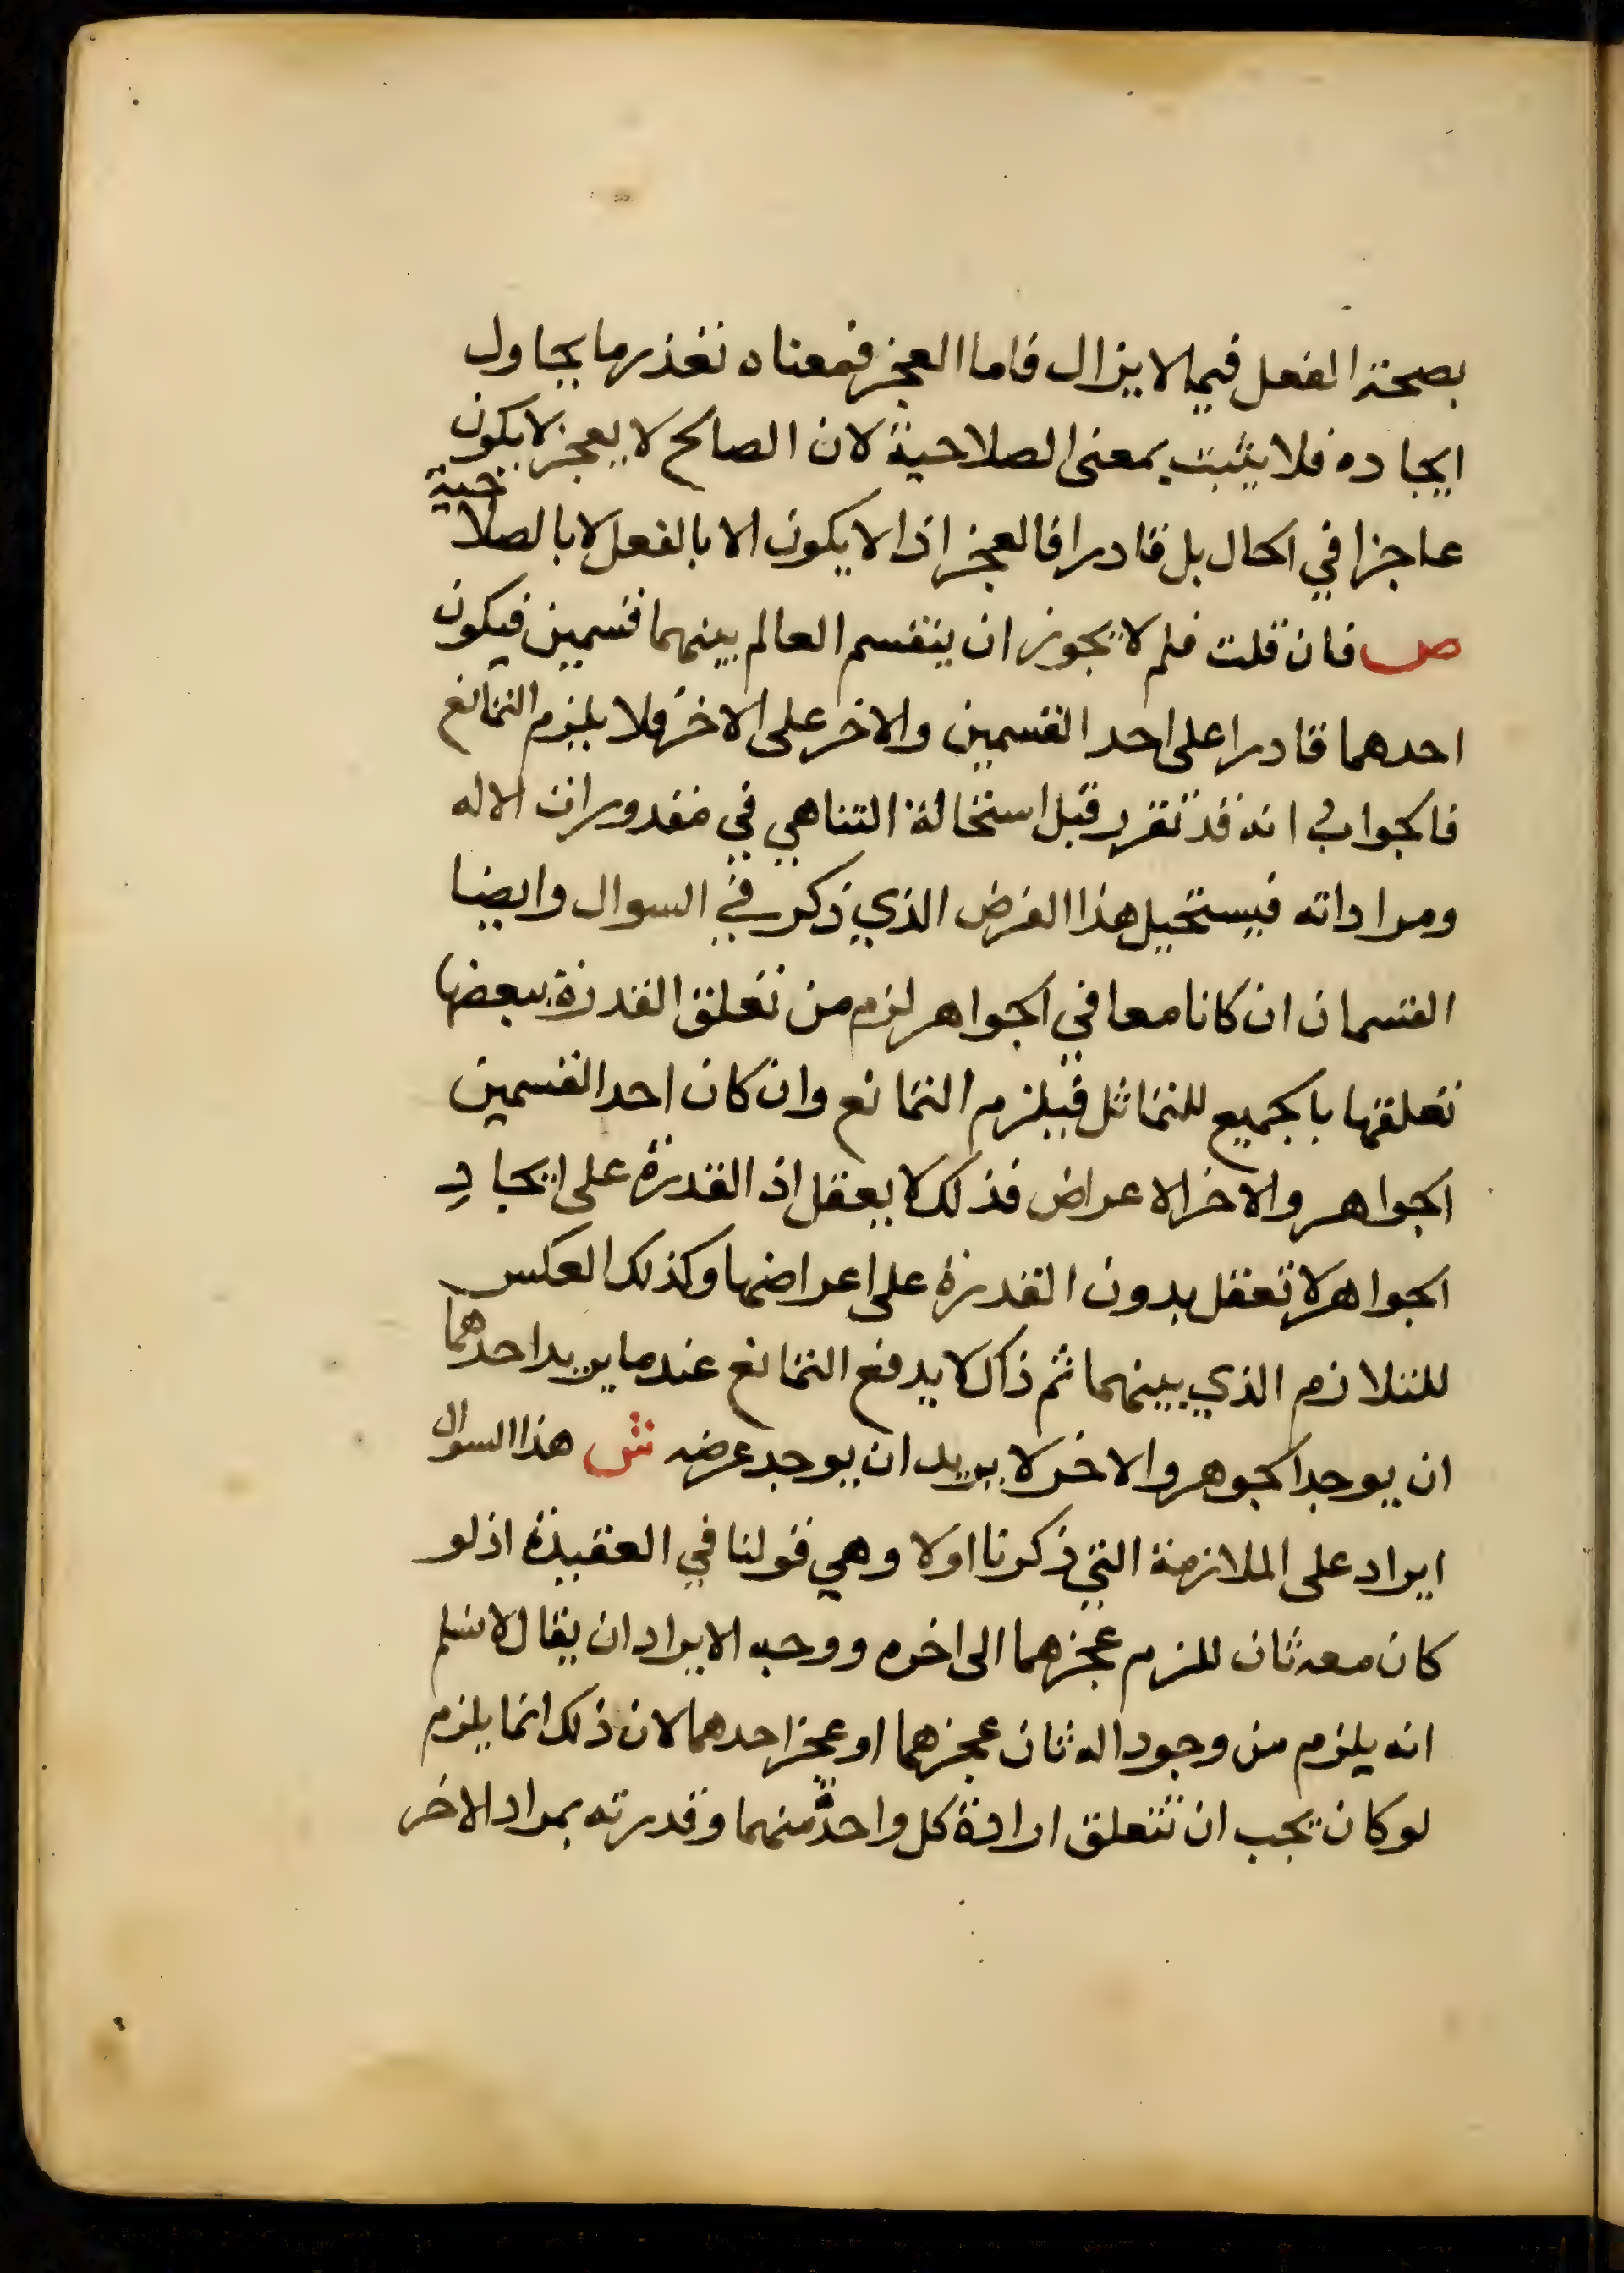 بصحة الفعل فيما لا يزال فاما العجز فمعناه تعذر ما يحاول
ايجاده فلا يثبت بمعنى الصلاحية لان الصالح لا يعجز لا يكون
عاجزا في الحال بل قادرا فالعجز اذا لا يكون الا بالفعل لا بالصلاحية
ص فان قلت فلم لا يجوز ان ينقسم العالم بينهما قسمين فيكون
احدهما قادرا على احد القسمين والاخر على الاخر فلا يلزم التمانع
فالجواب انه قد تقرر قبل استحالة التناهي في مقدورات الاله
ومراداته فيستحيل هذا الفرض الذي ذكر في السوال وايضا
القسمان ان كانا معا في الجواهر لزم من تعلق القدرة ببعضها
تعلقها بالجميع للتماثل فيلزم التمانع وان كان احد القسمين
الجواهر والاخر الاعراض فذلك لا يعقل اذ القدرة على ايجاد
الجواهر لا تعقل بدون القدرة على اعراضها وكذلك العكس
للتلازم الذي بينهما ثم ذاك لا يدفع التمانع عندما يريد احدهما
ان يوجد الجوهر والاخر لا يريد ان يوجد عرضه ش هذا السوال
ايراد على الملازمة التي ذكرنا اولا وهي قولنا في العقيدة اذ لو
كان معه ثان للزم عجزهما الى اخره ووجه الايراد ان يقال لا نسلم
انه يلزم من وجود اله ثان عجزهما او عجز احدهما لان ذلك انما يلزم
لو كان يجب ان تتعلق ارادة كل واحد منهما وقدرته بمراد الاخر